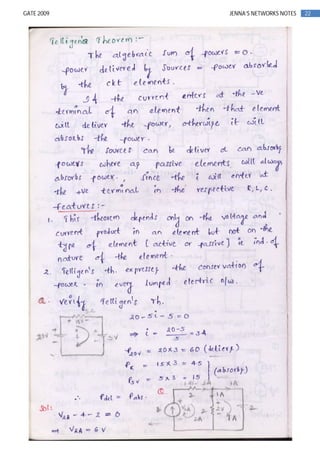 GATE 2009 JENNA'S NETWORKS NOTES 22
Telligen's Theorem :-
The algebraic sum of powers = 0.
power delivered by sources = power absorbed
by the ckt elements.
If the current enters at the -ve
terminal of an element then that element
will deliver the power, otherwise it will
absorbs the power.
The sources can be deliver or can absorbs
powers where as passive elements will always
absorbs power., Since the i will enter at
the +ve terminal in the respective R, L, C.
Features :-
1. This theorem depends only on the voltage and
current product in an element but not on the
type of element [active or passive] ie ind. of
nature of the element.
2. Telligen's th. expresses the conservation of
power in every lumped electric n/w.
Q. Verify Telligen's Th.
20 - 5i - 5 = 0
⇒ i = 20-5/5 = 3A
20V 5V
P20V = 20×3 = 60 (deliver)
PR = 15×3 = 45
P5V = 5×3 = 15 (absorbs)
∴ Pdel = Pabs.
Q.
1A
Sol:
V2A - 4 - 2 = 0
2A 2V 1A
⇒ V2A = 6V